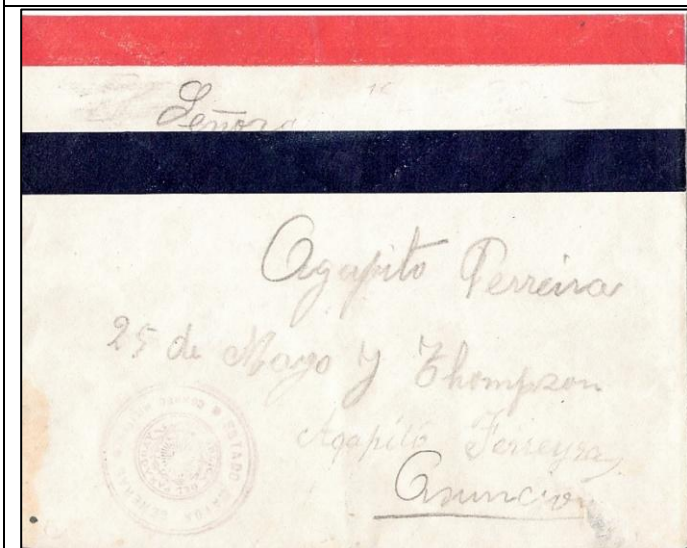 Señora
Agapito Perreira
25 de Mayo y Thompson
Agapito Ferreyra
Asunción
ESTADO MAYOR GENERAL